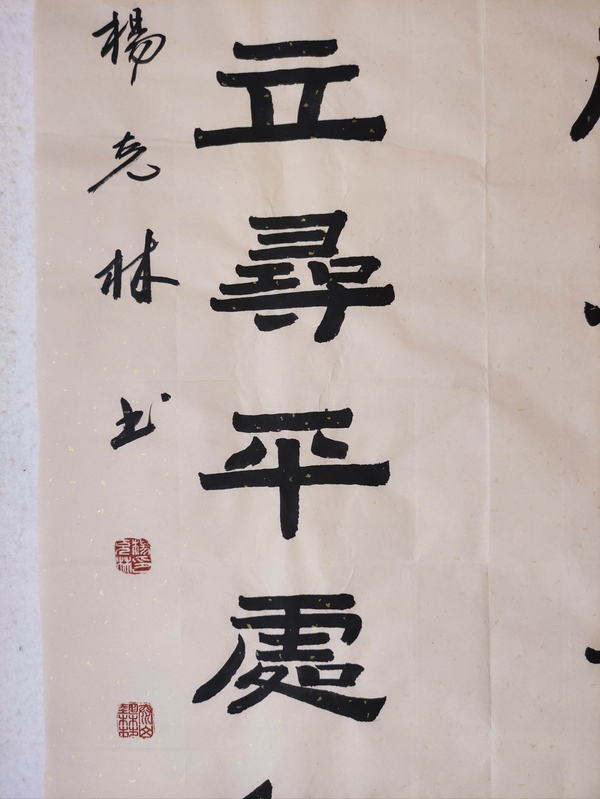 立尋平處
楊志林书